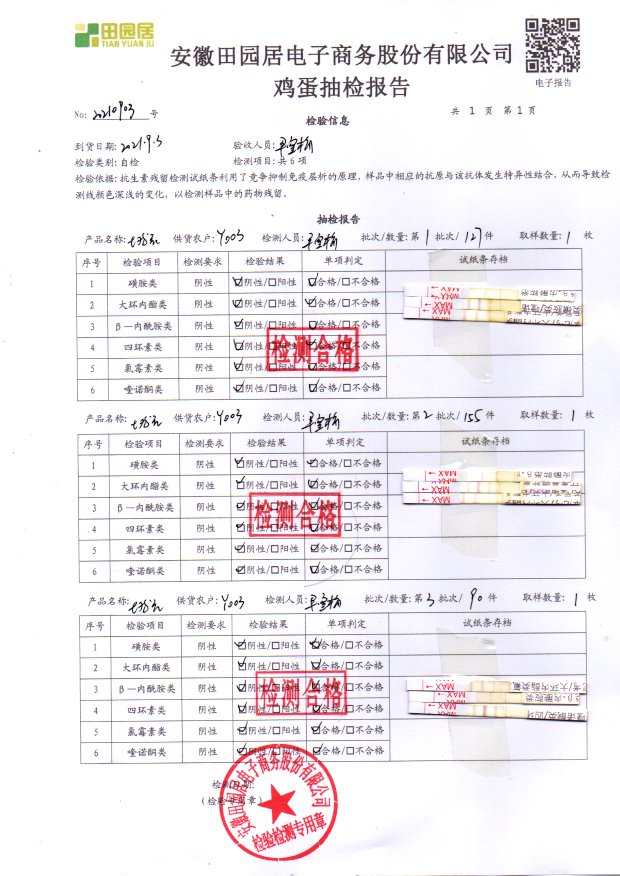 田园居
TIAN YUAN JU
安徽田园居电子商务股份有限公司
鸡蛋抽检报告
电子报告
No: 20210903 号
共 1 页 第 1 页
检验信息
到货日期: 2021.9.3 验收人员:
检验类别: 自检 检测项目: 共 6 项
检验依据: 抗生素残留检测试纸条利用了竞争抑制免疫层析的原理, 样品中相应的抗原与该抗体发生特异性结合, 从而导致检
测线颜色深浅的变化, 以检测样品中的药物残留。
抽检报告
产品名称: 供货农户: Y003 检测人员: 批次/数量: 第 1 批次/ 127 件 取样数量: 1 枚
序号 检验项目 检测要求 检验结果 单项判定 试纸条存档
1 磺胺类 阴性 ☑阴性/□阳性 ☑合格/□不合格
2 大环内酯类 阴性 ☑阴性/□阳性 ☑合格/□不合格
3 β—内酰胺类 阴性 ☑阴性/□阳性 ☑合格/□不合格
4 四环素类 阴性 ☑阴性/□阳性 ☑合格/□不合格
5 氯霉素类 阴性 ☑阴性/□阳性 ☑合格/□不合格
6 喹诺酮类 阴性 ☑阴性/□阳性 ☑合格/□不合格
检测合格
MAX
产品名称: 供货农户: Y003 检测人员: 批次/数量: 第 2 批次/ 155 件 取样数量: 1 枚
序号 检验项目 检测要求 检验结果 单项判定 试纸条存档
1 磺胺类 阴性 ☑阴性/□阳性 ☑合格/□不合格
2 大环内酯类 阴性 ☑阴性/□阳性 ☑合格/□不合格
3 β—内酰胺类 阴性 ☑阴性/□阳性 ☑合格/□不合格
4 四环素类 阴性 ☑阴性/□阳性 ☑合格/□不合格
5 氯霉素类 阴性 ☑阴性/□阳性 ☑合格/□不合格
6 喹诺酮类 阴性 ☑阴性/□阳性 ☑合格/□不合格
检测合格
MAX
产品名称: 供货农户: Y003 检测人员: 批次/数量: 第 3 批次/ 90 件 取样数量: 1 枚
序号 检验项目 检测要求 检验结果 单项判定 试纸条存档
1 磺胺类 阴性 ☑阴性/□阳性 ☑合格/□不合格
2 大环内酯类 阴性 ☑阴性/□阳性 ☑合格/□不合格
3 β—内酰胺类 阴性 ☑阴性/□阳性 ☑合格/□不合格
4 四环素类 阴性 ☑阴性/□阳性 ☑合格/□不合格
5 氯霉素类 阴性 ☑阴性/□阳性 ☑合格/□不合格
6 喹诺酮类 阴性 ☑阴性/□阳性 ☑合格/□不合格
检测合格
MAX
安徽田园居电子商务股份有限公司
检验检测专用章